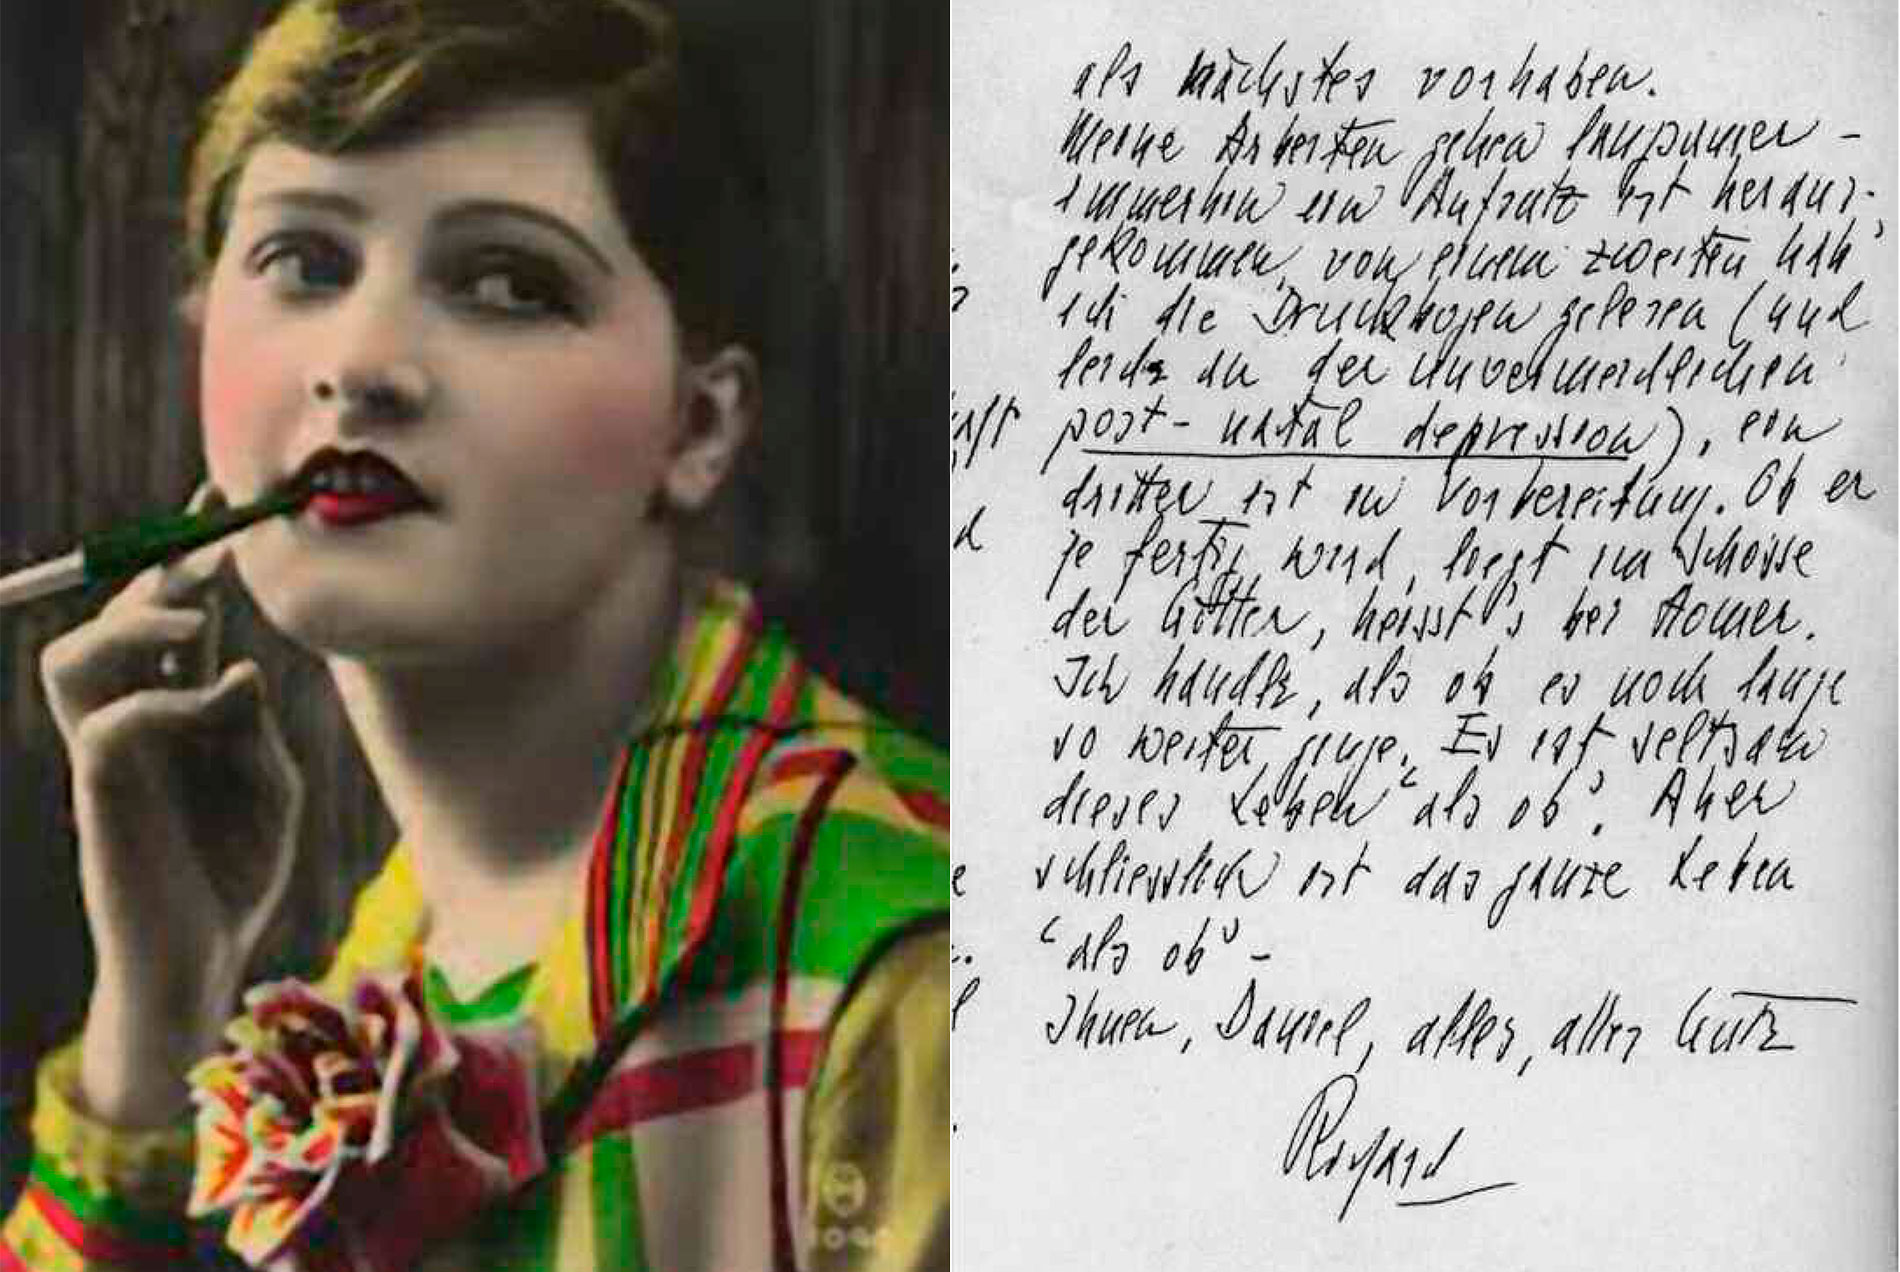 als nächstes vorhaben.
Meine Arbeiten gehen langsamer -
immerhin ein Aufsatz ist heraus-
gekommen, von einem zweiten hab'
ich die Druckbogen gelesen (und
leide an der unvermeidlichen
post-natal depression), ein
dritter ist in Vorbereitung. Ob er
je fertig wird, liegt im Schosse
der Götter, heisst's bei Homer.
Ich handle, als ob es noch lange
so weiter ginge. Es ist seltsam
dieses Leben "als ob". Aber
schliesslich ist das ganze Leben
"als ob" -
Ihnen, Daniel, alles, alles Gute
Richard